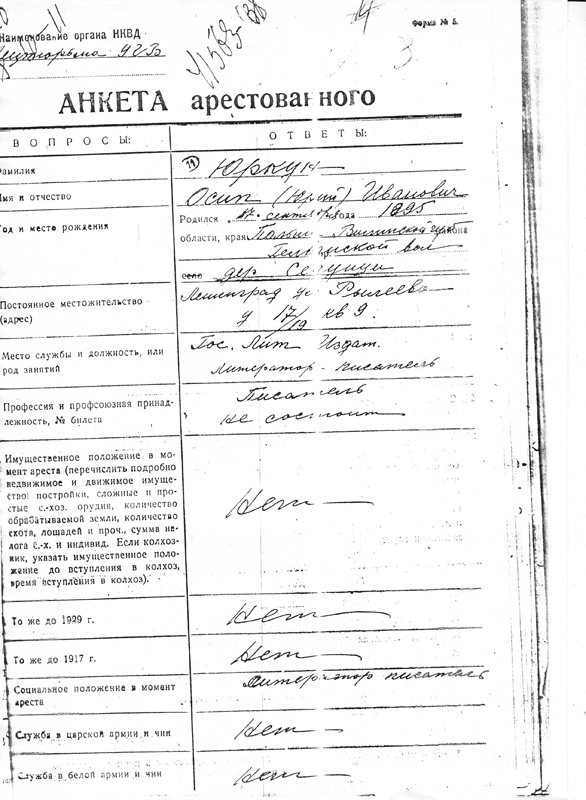 Форма № 5.
Наименование органа НКВД
11583/38
4
3
АНКЕТА арестованного
ВОПРОСЫ:
ОТВЕТЫ:
Фамилия
Юркун
Имя и отчество
Осип (Юрий) Иванович
Год и место рождения
Родился 17 сентября года 1895
области, края Польша Виленской губ
вол
село дер.
Постоянное местожительство
(адрес)
Ленинград ул Рылеева
д 17/19 кв 9.
Место службы и должность, или
род занятий
Гос. Лит Издат.
Литератор - писатель
Профессия и профсоюзная принад-
лежность, № билета
Писатель
не состоит
Имущественное положение в мо-
мент ареста (перечислить подробно
недвижимое и движимое имуще-
ство: постройки, сложные и про-
стые с.-хоз. орудия, количество
обрабатываемой земли, количество
скота, лошадей и проч., сумма на-
лога с.-х. и индивид. Если колхоз-
ник, указать имущественное поло-
жение до вступления в колхоз,
время вступления в колхоз).
Нет
То же до 1929 г.
Нет
То же до 1917 г.
Нет
Социальное положение в момент
ареста
Литератор писатель
Служба в царской армии и чин
Нет
Служба в белой армии и чин
Нет